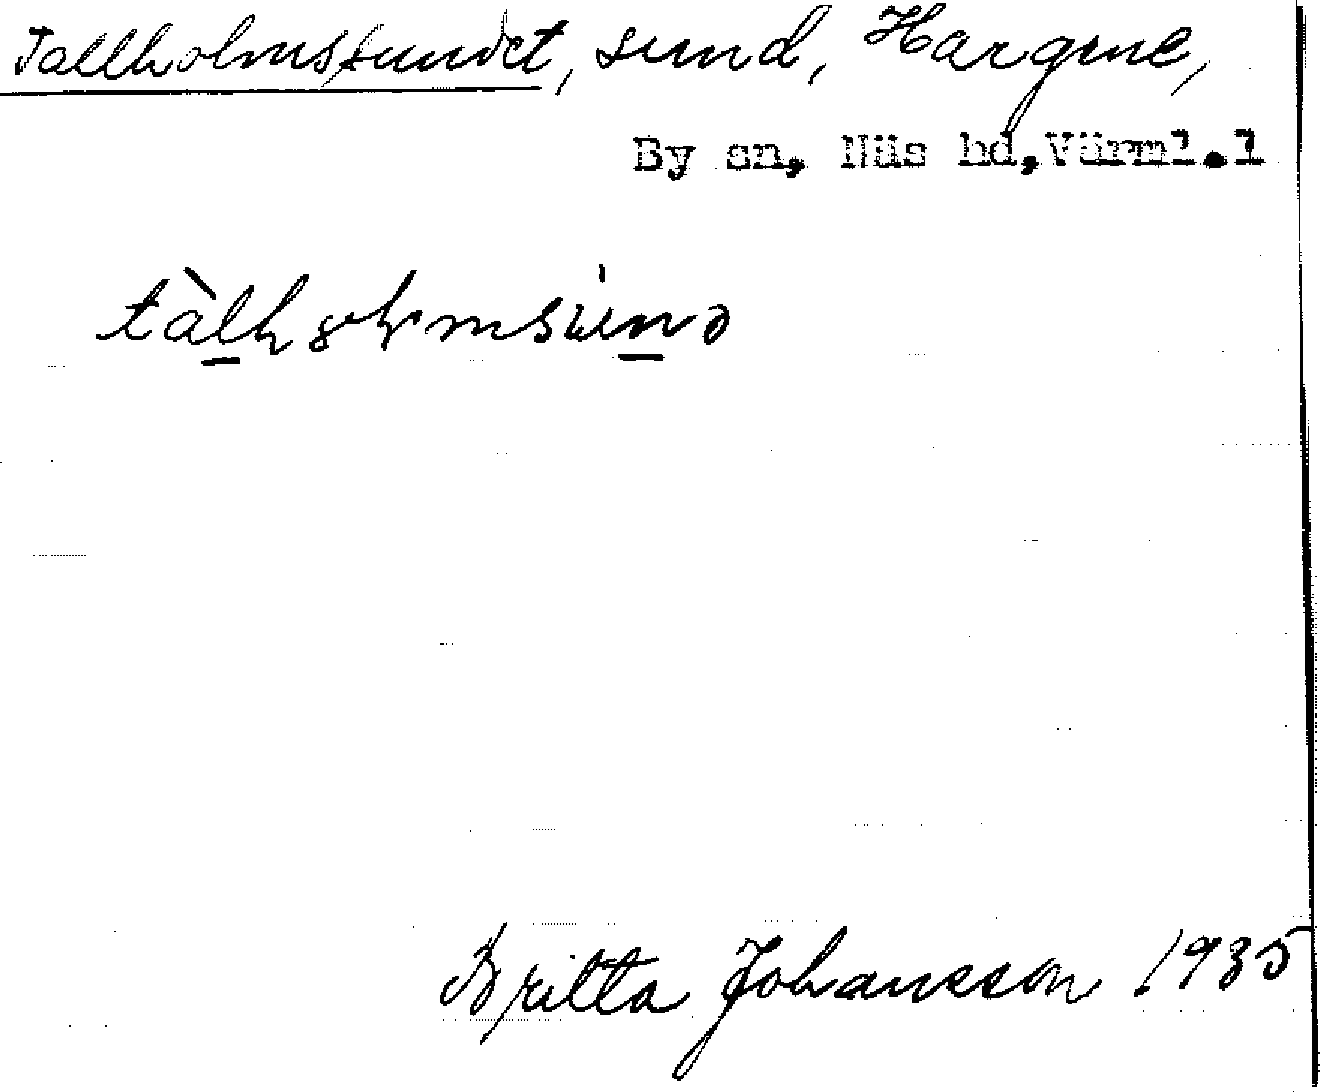 Tallholmssundet, sund, Hargene,
By sn, Näs hd, Värml. l
Britta Johansson 1935